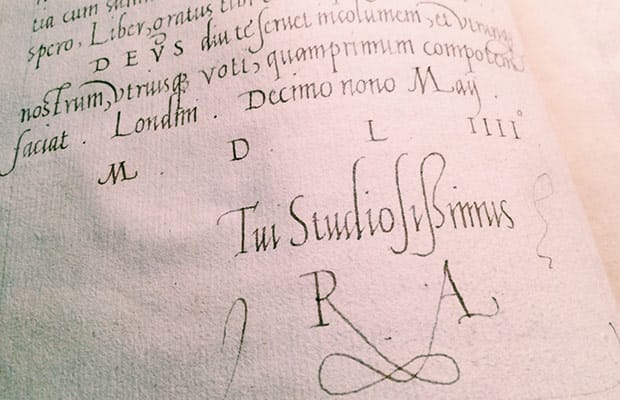 tia cum
spero. Liber, gratus tibi
DEVS diu te servet incolumem, et utrumq
nostrum, utriusque voti, quamprimum compotem
faciat. Londini. Decimo nono May.
M. D. L IIII°
Tui Studiosissimus
R A